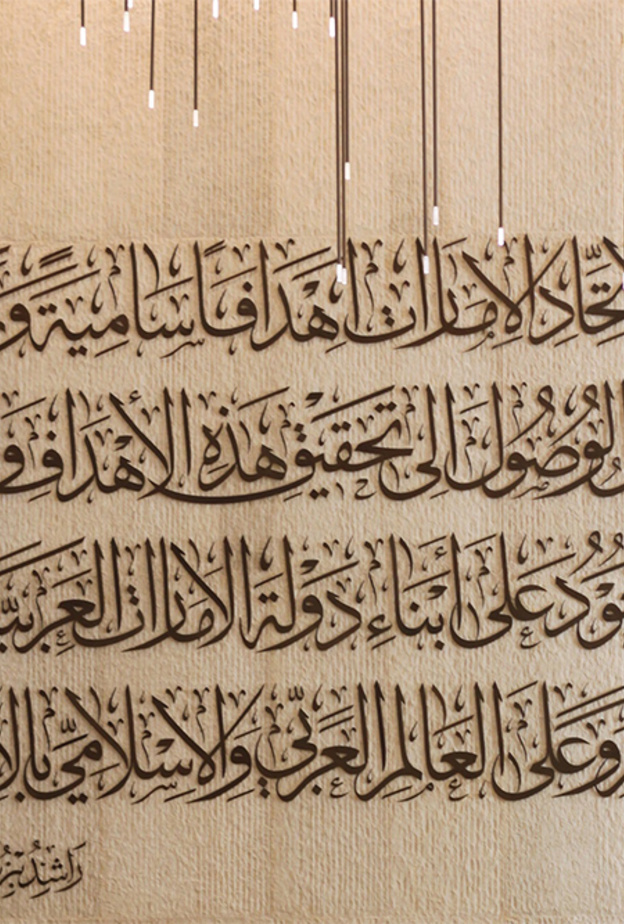 اتِّحَادِ الإِمَارَات أَهْدَافًا سَامِيَةً
الوُصُولَ إِلى تَحقيقِ هَذِهِ الأَهْدَافِ
عَلى أَبنَاءِ دَوْلَةِ الإِمَارَاتِ العَرَبيَّة
وَعَلى العَالَمِ العَرَبيِّ وَالإِسْلَامِيِّ
رَاشِدُ بْن